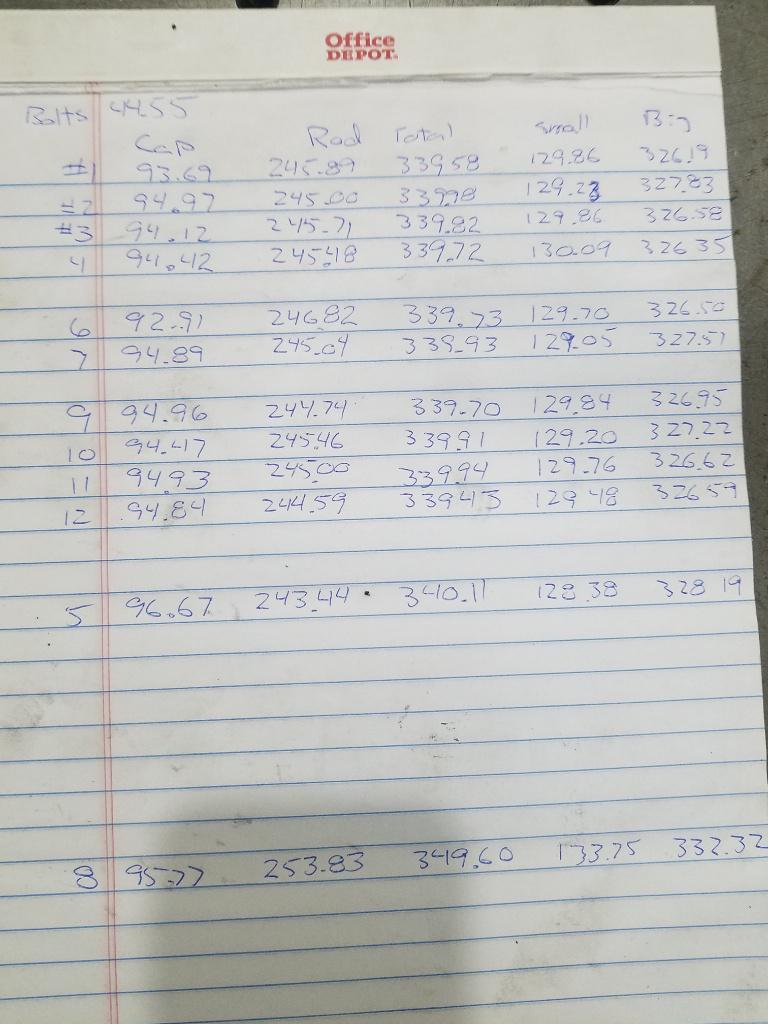 Office
DEPOT.
Bolts 44.55
Cap Rod Total small Big
#1 93.69 245.89 339.58 129.86 326.19
#2 94.97 245.00 339.98 129.23 327.83
#3 94.12 245.71 339.82 129.86 326.58
4 94.42 245.48 339.72 130.09 326.35
6 92.91 246.82 339.73 129.70 326.50
7 94.89 245.04 339.93 129.05 327.51
9 94.96 244.74 339.70 129.84 326.95
10 94.47 245.46 339.91 129.20 327.22
11 94.93 245.00 339.94 129.76 326.62
12 94.84 244.59 339.43 129.48 326.59
5 96.67 243.44 340.11 128.38 328.19
8 95.77 253.83 349.60 133.75 332.32